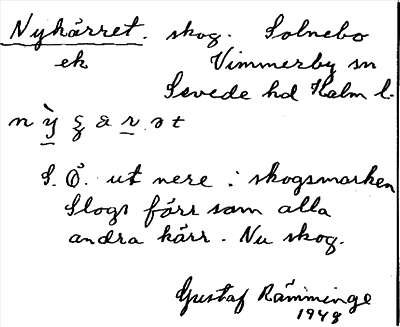 Nykärret. skog. Solnebo
ek Vimmerby sn
Sevede hd Kalm l.
S. Ö. ut nere i skogsmarken
Slogs förr som alla
andra kärr. Nu skog.
Gustaf Rämminge
1948